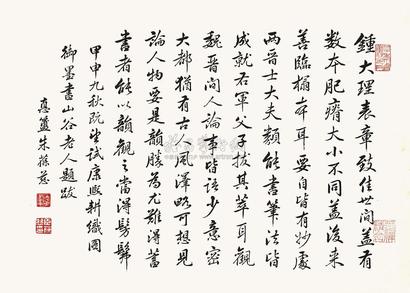 鍾大理表章致佳世間蓋有
數本肥瘠大小不同蓋後来
善臨搨本耳要自皆有妙處
兩晋士大夫類能書筆法皆
成就右軍父子拔其萃耳觀
魏晋間人論事皆語少意密
大都猶有古人風澤略可想見
論人物要是韻勝為尤難得蓄
書者能以韻觀之當得髣髴
甲申九秋既望試康熙耕織圖
御墨書山谷老人題跋
朱揆